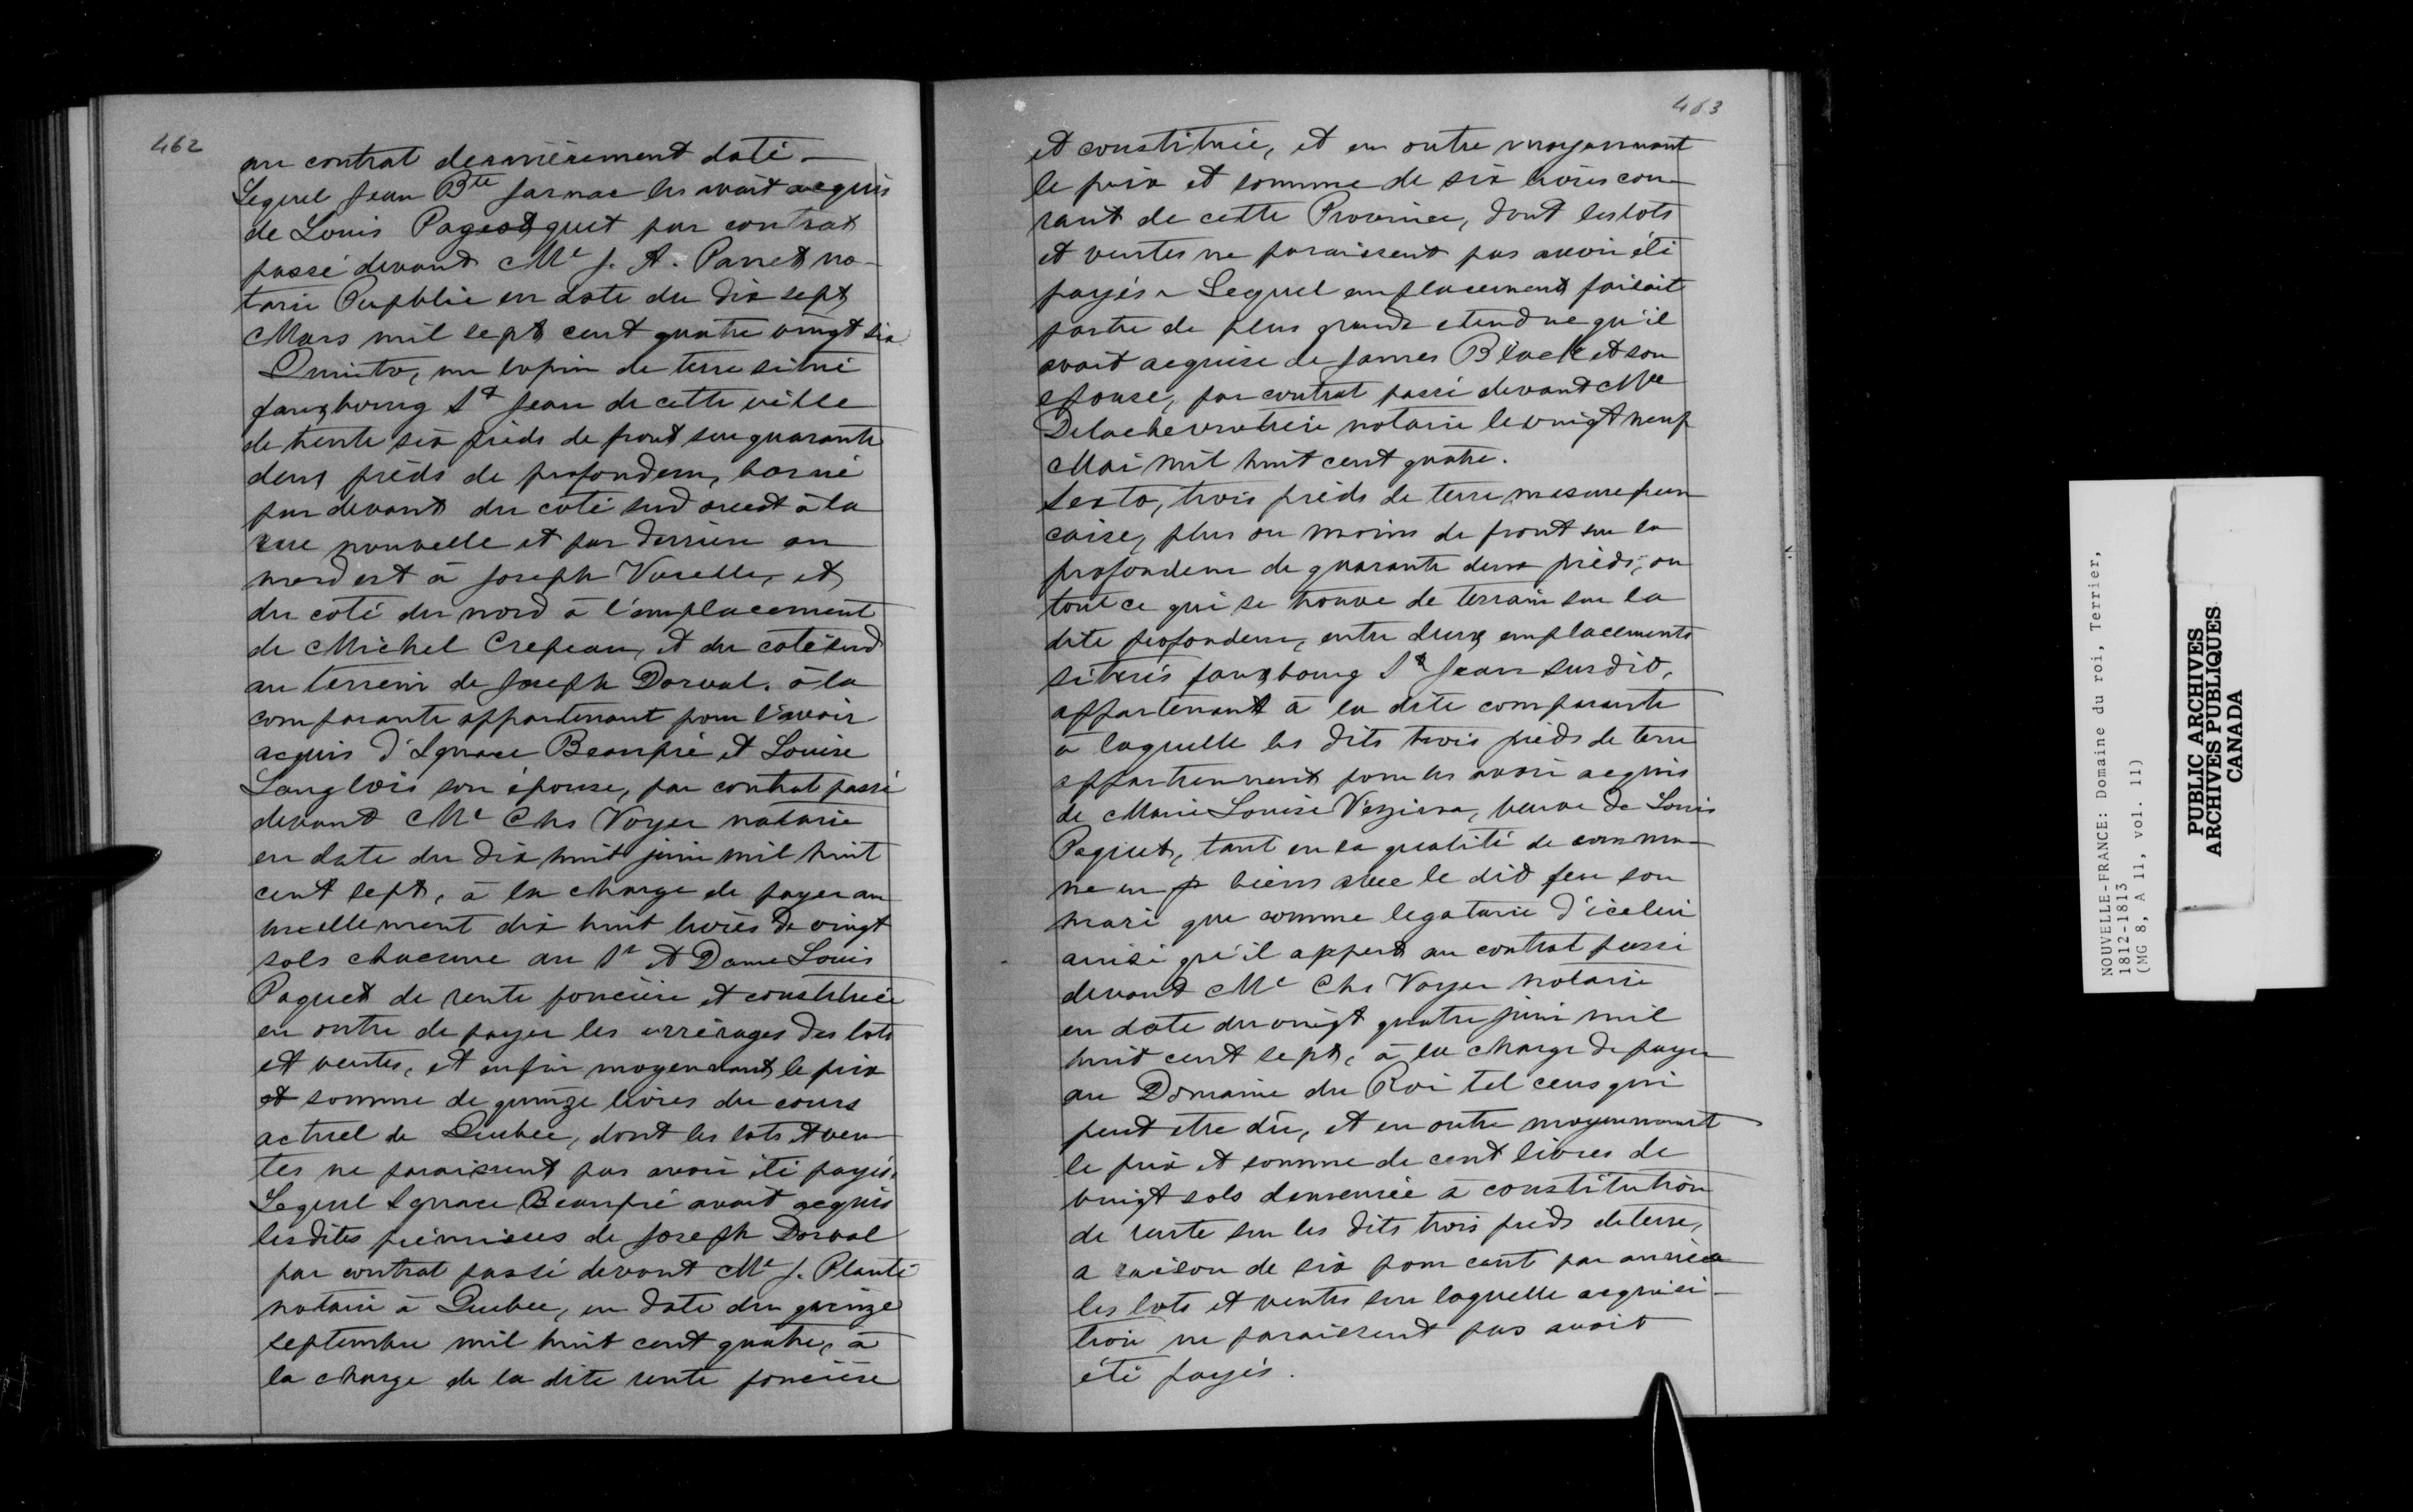 462
au contrat dernièrement daté.
Lequel Jean Bte Jarnac les avait acquis
de Louis Pageotquet par contrat
passé devant Me J. A. Panet no-
taire Pupblic en date du dix sept
Mars mil sept cent quatre vingt six
Quinto, un lopin de terre situé
fauxbourg St Jean de cette ville
de trente six pieds de front sur quarante
deux pieds de profondeur, borné
par devant du coté sud ouest à la
rue nouvelle et par derrière au
nord est à Joseph et
du coté du nord à l'emplacement
de Michel Crepeau, et du coté sud
au terrein de Joseph Dorval. à la
comparante appartenant pour l'avoir
acquis d'Ignace Beaupré et Louise
Langlois son épouse, par contrat passé
devant Me Chs Voyer notaire
en date du dix huit juin mil huit
cent sept, à la charge de payer an-
nuellement dix huit livres de vingt
sols chacune au Sr et Dame Louis
Paquet de rente foncière et constituée
en outre de payer les arrérages des lots
et ventes, et enfin moyennant le prix
et somme de quinze livres du cours
actuel de Quebec, dont les lots et ven-
tes ne paraissent pas avoir été payés.
Lequel Ignace Beaupré avait acquis
les dites prémisses de Joseph Dorval
par contrat passé devant Me J. Planté
notaire à Quebec, en date du quinze
septembre mil huit cent quatre, à
la charge de la dite rente foncière
463
et constituée, et en outre moyennant
le prix et somme de six livres cou-
rant de cette Province, dont les lots
et ventes ne paraissent pas avoir été
payés - Lequel emplacement faisait
partie de plus grande etendue qu'il
avait acquise de James Black et son
epouse, par contrat passé devant Me
Delachevrotière notaire le vingt neuf
Mai mil huit cent quatre.
Sexto, trois pieds de terre mesure fran-
caise, plus ou moins de front sur la
profondeur de quarante deux pieds, ou
tout ce qui se trouve de terrain sur la
dite profondeur, entre deux emplacements
situés fauxbourg St Jean susdit,
appartenant à la dite comparante
a laquelle les dits trois pieds de terre
appartiennent pour les avoir acquis
de Marie Louise Vezina, veuve de Louis
Paquet, tant en sa qualité de commu-
ne en biens avec le dit feu son
mari que comme legataire d'icelui
ainsi qu'il appert au contrat passé
devant Me Chs Voyer notaire
en date du vingt quatre juin mil
huit cent sept, à la charge de payer
au Domaine du Roi tel cens qui
peut etre dû, et en outre moyennant
le prix et somme de cent livres de
vingt sols demeurée à constitution
de rente sur les dits trois pieds de terre,
a raison de six pour cent par année
les lots et ventes sur laquelle acquisi-
tion ne paraissent pas avoir
été payés.
NOUVELLE-FRANCE: Domaine du roi, Terrier,
1812-1813
(MG 8, A 11, vol. 11)
PUBLIC ARCHIVES
ARCHIVES PUBLIQUES
CANADA